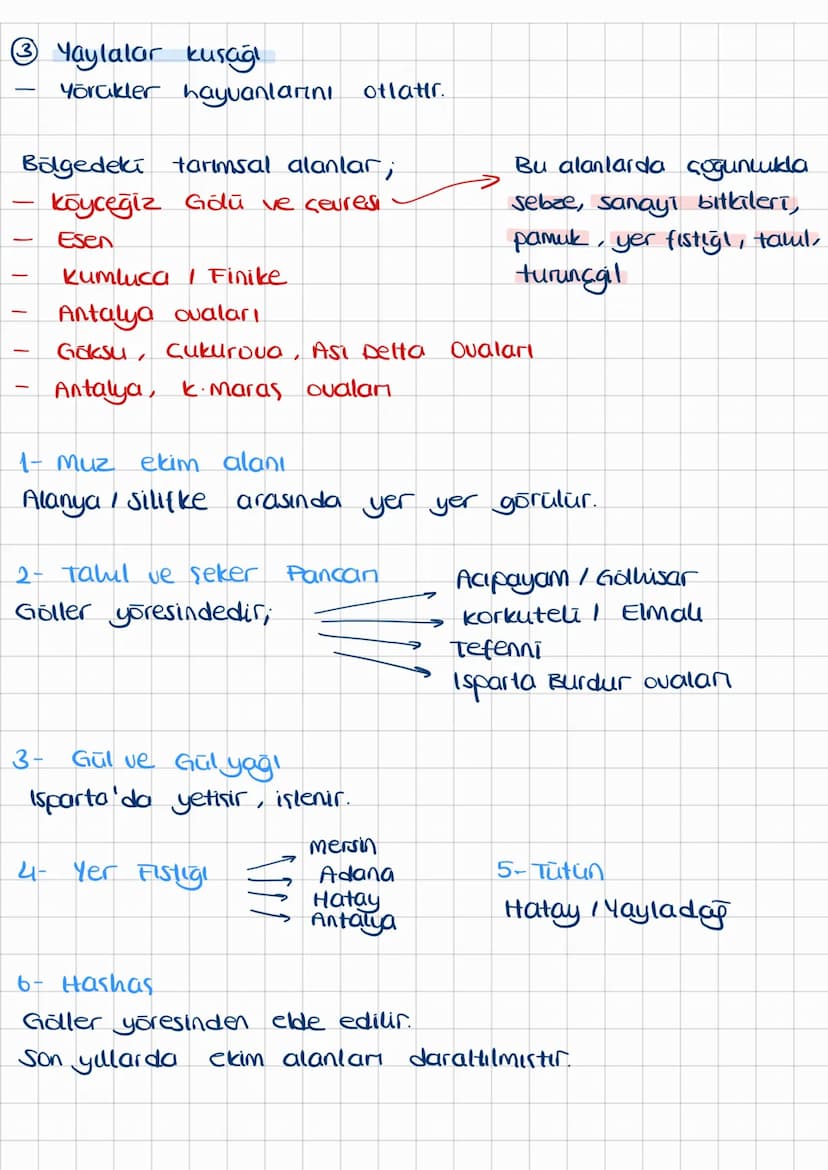 ③ Yaylalar kuşağı
— Yörükler hayvanlarını otlatır.
Bölgedeki tarımsal alanlar;
— Köyceğiz Gölü ve çevresi
— Esen
— Kumluca / Finike
— Antalya ovaları
— Göksu, Çukurova, Asi Delta Ovaları
— Antalya, K.Maraş ovaları
Bu alanlarda çoğunlukla
sebze, sanayi bitkileri,
pamuk, yer fıstığı, tahıl,
turunçgil
1- Muz ekim alanı
Alanya / Silifke arasında yer yer görülür.
2- Tahıl ve Şeker Pancarı
Göller yöresindedir;
Acıpayam / Gölhisar
Korkuteli / Elmalı
Tefenni
Isparta Burdur ovaları
3- Gül ve Gül yağı
Isparta'da yetişir, işlenir.
4- Yer Fıstığı
Mersin
Adana
Hatay
Antalya
5- Tütün
Hatay / Yayladağ
6- Haşhaş
Göller yöresinden elde edilir.
Son yıllarda ekim alanları daraltılmıştır.